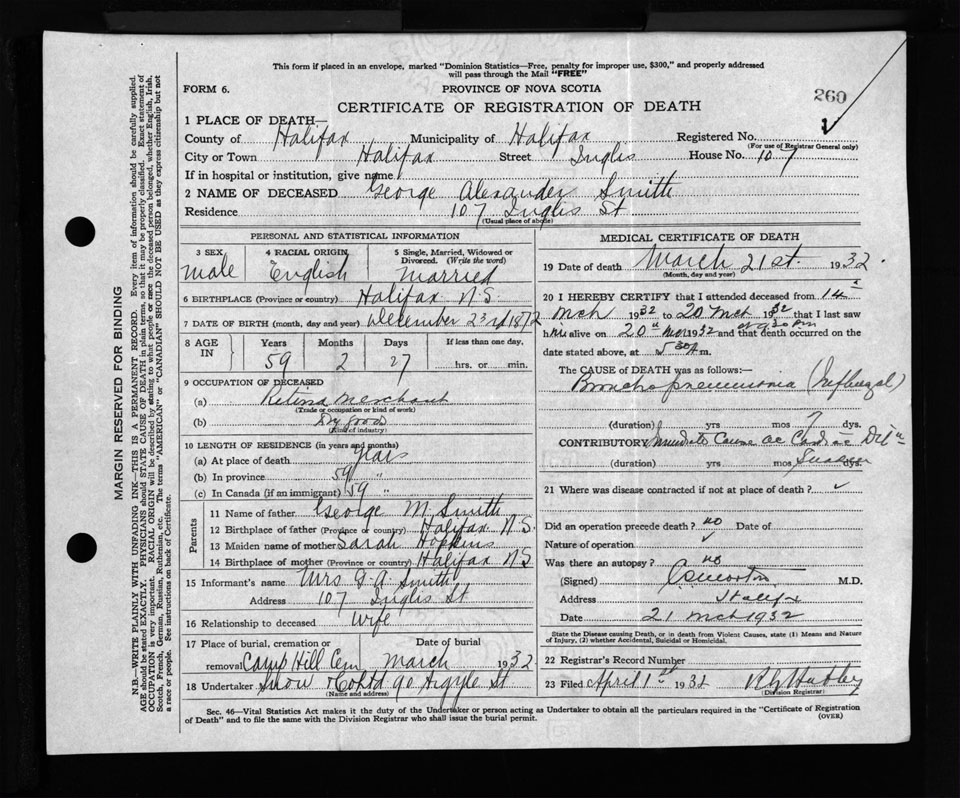 This form if placed in an envelope, marked "Dominion Statistics—Free, penalty for improper use, $300," and properly addressed
will pass through the Mail "FREE"
FORM 6.
PROVINCE OF NOVA SCOTIA
260
CERTIFICATE OF REGISTRATION OF DEATH
1 PLACE OF DEATH—
County of Halifax Municipality of Halifax Registered No.
(For use of Registrar General only)
City or Town Halifax Street Inglis House No. 107
If in hospital or institution, give name
2 NAME OF DECEASED George Alexander Smith
Residence 107 Inglis St
(Usual place of abode)
PERSONAL AND STATISTICAL INFORMATION
3 SEX 4 RACIAL ORIGIN 5 Single, Married, Widowed or
Divorced. (Write the word)
male English Married
6 BIRTHPLACE (Province or country) Halifax N.S.
7 DATE OF BIRTH (month, day and year) December 23rd 1872
8 AGE IN Years Months Days If less than one day,
59 2 27 hrs. or min.
9 OCCUPATION OF DECEASED
(a) Retired Merchant
(Trade or occupation or kind of work)
(b) Dry Goods
(Kind of industry)
10 LENGTH OF RESIDENCE (in years and months)
(a) At place of death years
(b) In province 59 "
(c) In Canada (if an immigrant) 59 "
Parents
11 Name of father George M Smith
12 Birthplace of father (Province or country) Halifax N.S.
13 Maiden name of mother Sarah Hopkins
14 Birthplace of mother (Province or country) Halifax N.S
15 Informant's name Mrs G A. Smith
Address 107 Inglis St
16 Relationship to deceased Wife
17 Place of burial, cremation or Date of burial
removal Camp Hill Cem March 1932
18 Undertaker Snow & Co Ltd 90 Argyle St
(Name and address)
MEDICAL CERTIFICATE OF DEATH
19 Date of death March 21st. 1932.
(Month, day and year)
20 I HEREBY CERTIFY that I attended deceased from 14
Mch 1932 to 20 Mch 1932 that I last saw
him alive on 20th Mar 1932 at 9 30 pm and that death occurred on the
date stated above, at 5 30 A m.
The CAUSE of DEATH was as follows:—
Broncho pneumonia (Influenzal)
(duration) yrs mos 7 dys.
CONTRIBUTORY Immediate Cause ac Cardiac Dil
(duration) yrs mos dys.
21 Where was disease contracted if not at place of death?
Did an operation precede death? no Date of
Nature of operation
Was there an autopsy? no
(Signed) M.D.
Address Halifax
Date 21 Mch 1932
State the Disease causing Death, or in death from Violent Causes, state (1) Means and Nature
of Injury, (2) whether Accidental, Suicidal or Homicidal.
22 Registrar's Record Number
23 Filed April 1st 1932
(Division Registrar)
Sec. 46—Vital Statistics Act makes it the duty of the Undertaker or person acting as Undertaker to obtain all the particulars required in the "Certificate of Registration
of Death" and to file the same with the Division Registrar who shall issue the burial permit. (OVER)
MARGIN RESERVED FOR BINDING
N.B.—WRITE PLAINLY WITH UNFADING INK—THIS IS A PERMANENT RECORD. Every item of information should be carefully supplied.
AGE should be stated EXACTLY. PHYSICIANS should STATE CAUSE OF DEATH in plain terms, so that it may be properly classified. Exact statement of
OCCUPATION is very important. RACIAL ORIGIN will be described by stating to what people or race the deceased person belonged, whether English, Irish,
Scotch, French, German, Russian, Ruthenian, etc. The terms "AMERICAN" or "CANADIAN" SHOULD NOT BE USED as they express citizenship but not
a race or people. See instructions on back of Certificate.